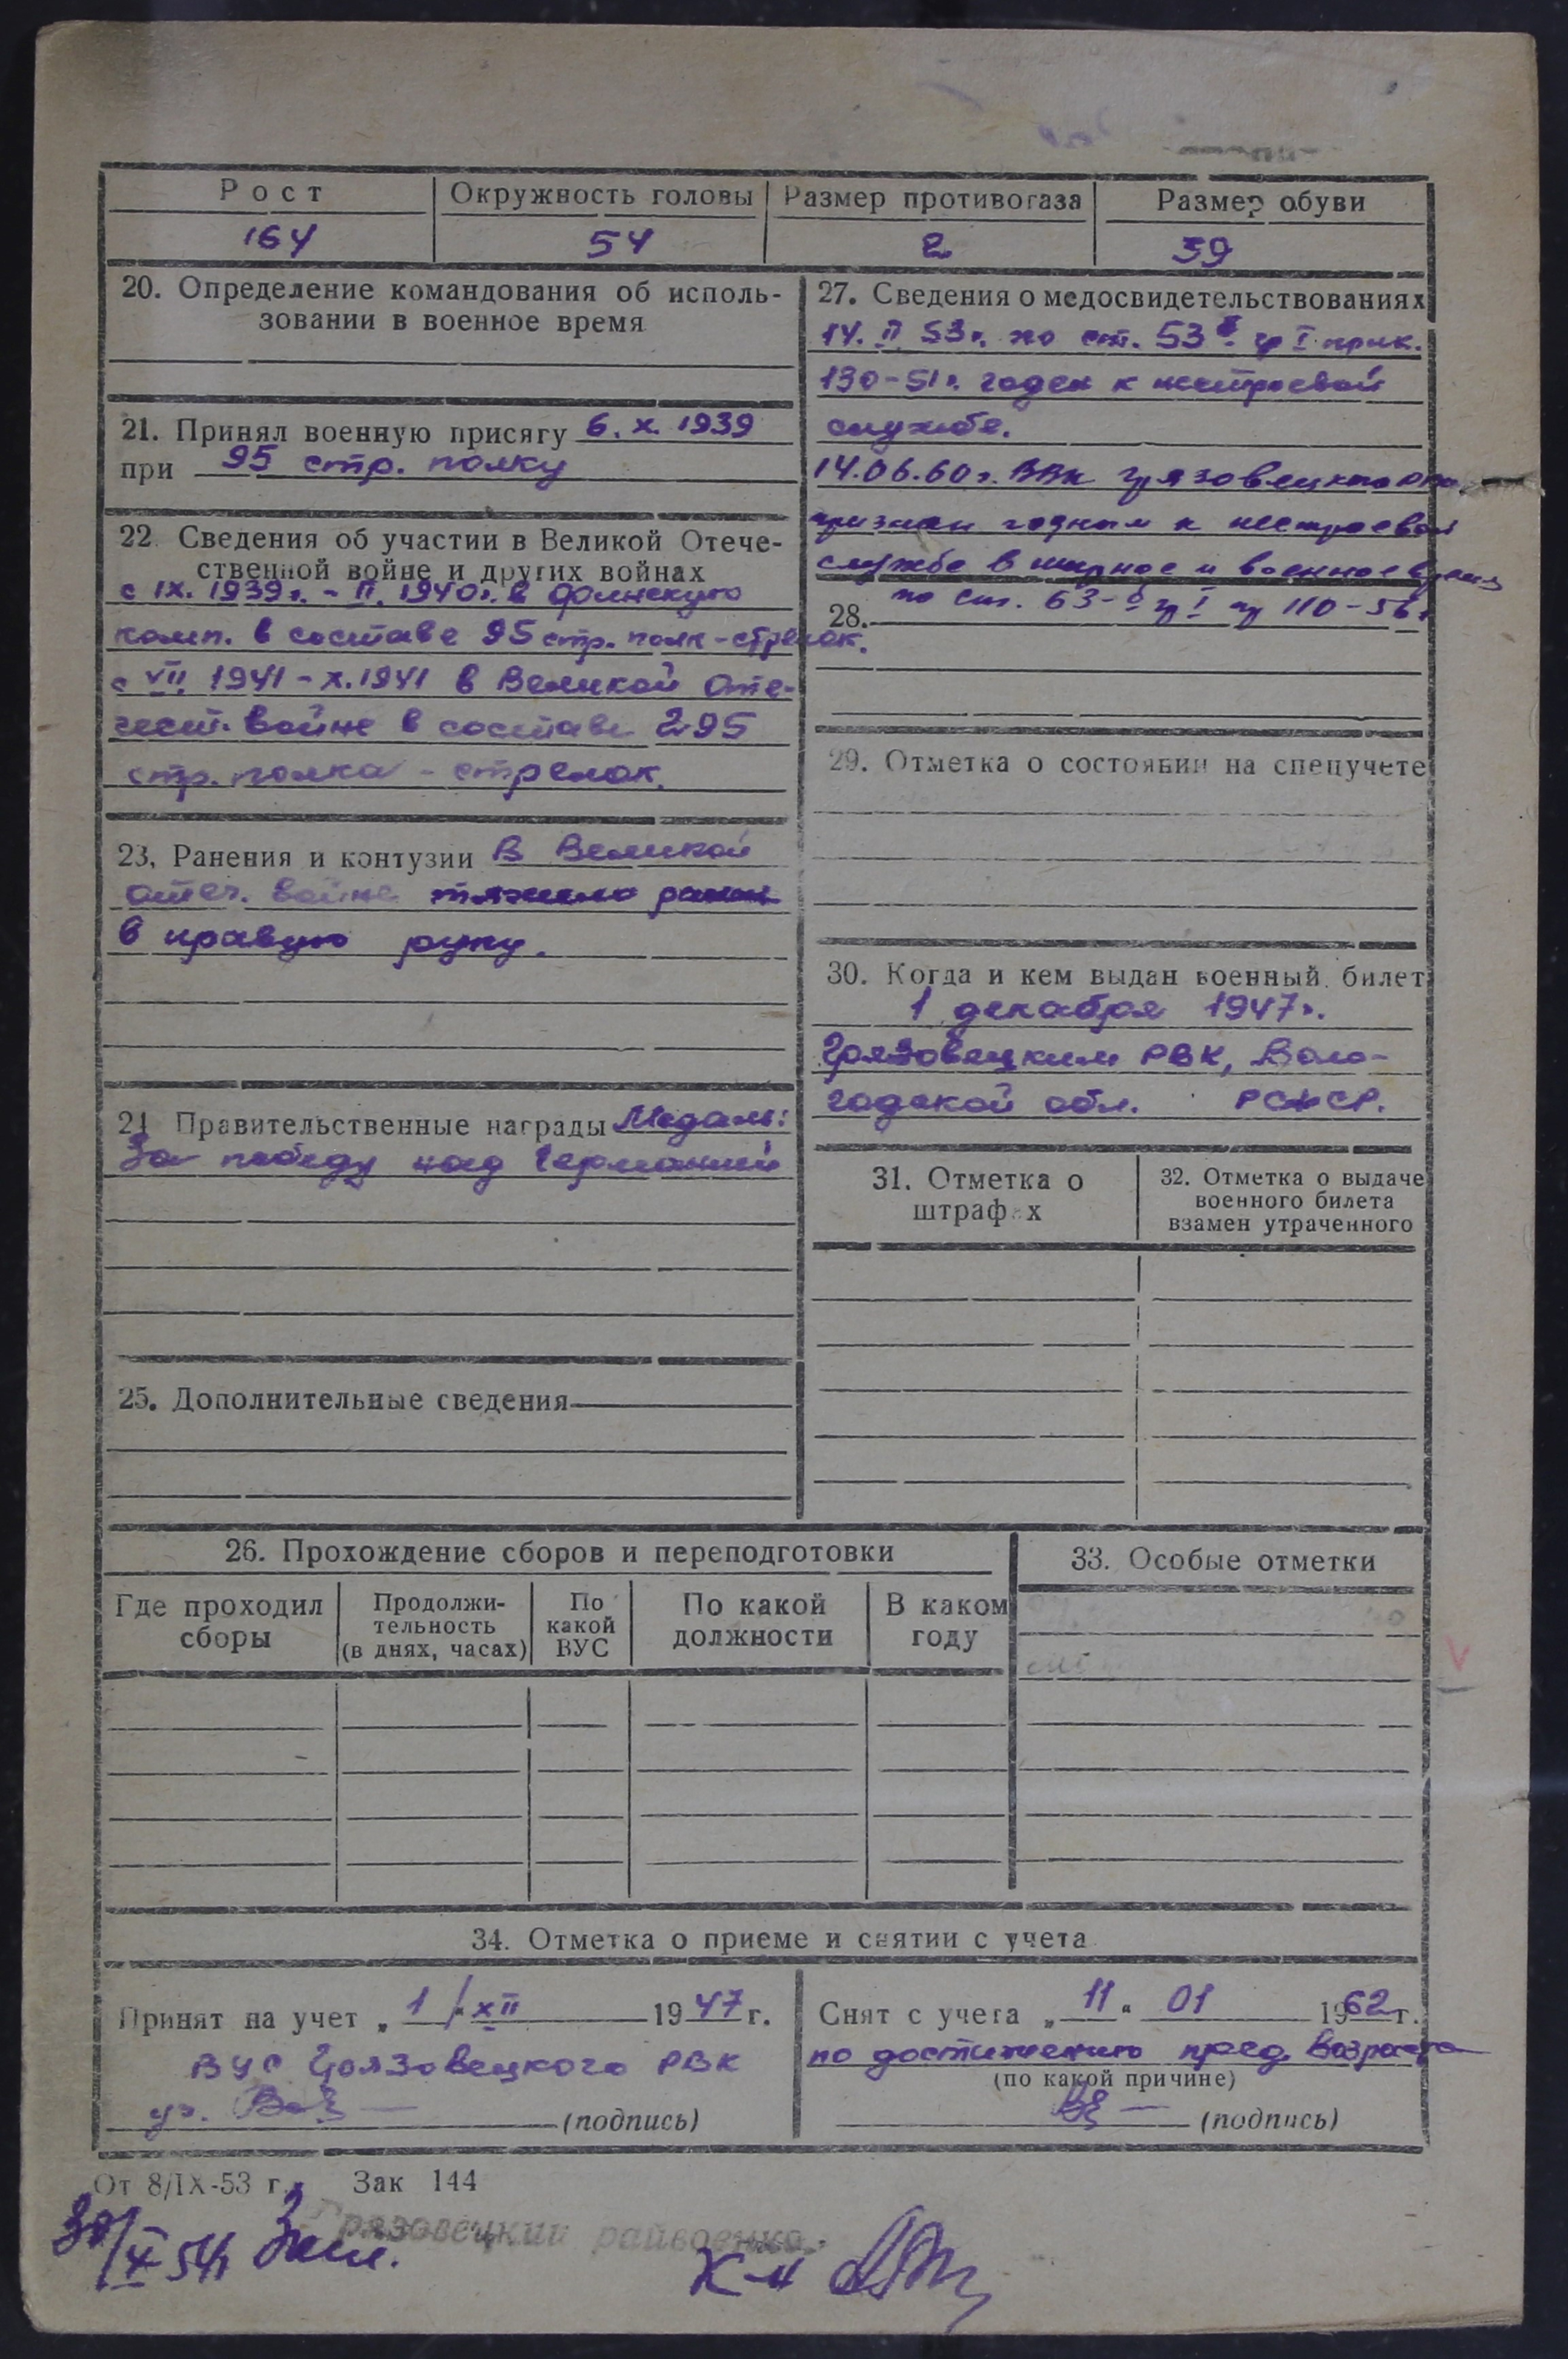 Рост Окружность головы Размер противогаза Размер обуви
164 54 2 39
20. Определение командования об исполь-
зовании в военное время
21. Принял военную присягу 6. X. 1939
при 95 стр. полку
22. Сведения об участии в Великой Отече-
ственной войне и других войнах
с IX. 1939г. - II. 1940г. в финскую
комп. в составе 95 стр. полк - стрелок.
с VII. 1941 - X. 1941 в Великой Оте-
чест. войне в составе 295
стр. полка - стрелок.
23, Ранения и контузии В Великой
отеч. войне тяжело ранен
в правую руку.
24 Правительственные награды Медаль:
За победу над Германией
25. Дополнительные сведения
27. Сведения о медосвидетельствованиях
14. II 53г. по ст. 53 гр I прик.
130-51г. годен к нестроевой
службе.
14.06.60г. ВВК Грязовецкого
признан годным к нестроевой
службе в мирное и военное время
по ст. 63-б гр I пр 110-56г
28.
29. Отметка о состоянии на спецучете
30. Когда и кем выдан военный билет
1 декабря 1947г.
Грязовецким РВК, Воло-
годской обл. РСФСР.
31. Отметка о
штрафах
32. Отметка о выдаче
военного билета
взамен утраченного
26. Прохождение сборов и переподготовки
Где проходил
сборы
Продолжи-
тельность
(в днях, часах)
По
какой
ВУС
По какой
должности
В каком
году
33. Особые отметки
34. Отметка о приеме и снятии с учета
Принят на учет „ 1 " XII 1947 г.
ВУС Грязовецкого РВК
(подпись)
Снят с учета „ 11 " 01 1962 г.
по достижению пред. возраста
(по какой причине)
(подпись)
От 8/IX-53 г. Зак 144
Грязовецкий райвоенко
30/X 54г
К-н